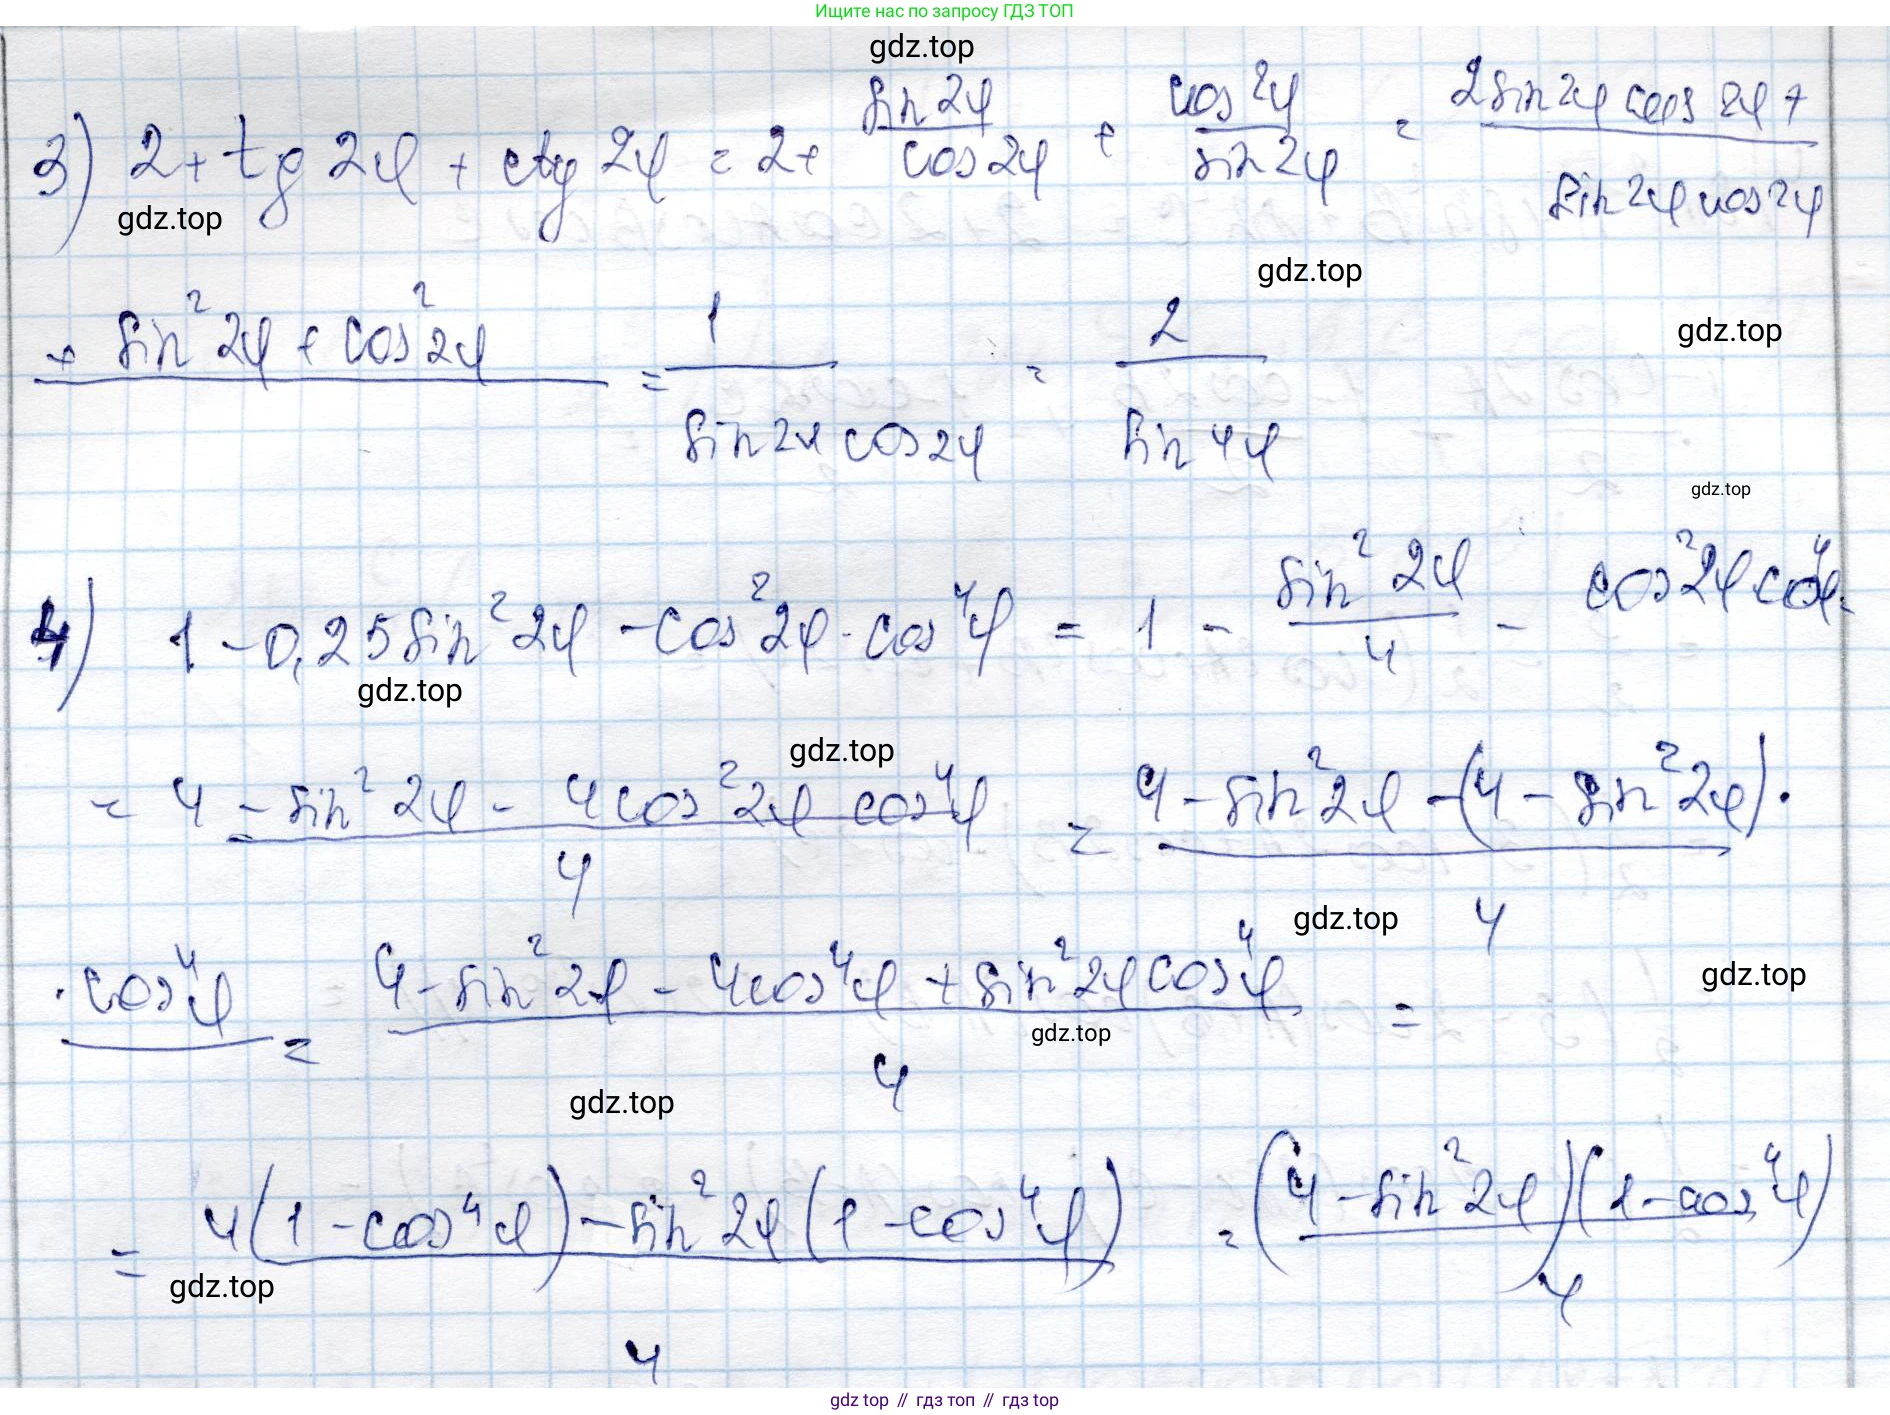 Ищите нас по запросу ГДЗ ТОП
gdz.top
3) 2 + tg 2φ + ctg 2φ = 2 + sin 2φ / cos 2φ + cos 2φ / sin 2φ = 2 sin 2φ cos 2φ + / sin 2φ cos 2φ
gdz.top
gdz.top
+ sin² 2φ + cos² 2φ = 1 / sin 2φ cos 2φ = 2 / sin 4φ
gdz.top
gdz.top
4) 1 - 0,25 sin² 2φ - cos² 2φ · cos⁴ φ = 1 - sin² 2φ / 4 - cos² 2φ cos⁴ φ =
gdz.top
gdz.top
= 4 - sin² 2φ - 4 cos² 2φ cos⁴ φ / 4 = 4 - sin² 2φ - (4 - sin² 2φ) · / 4
gdz.top
· cos⁴ φ = 4 - sin² 2φ - 4 cos⁴ φ + sin² 2φ cos⁴ φ / 4 =
gdz.top
gdz.top
gdz.top
= 4(1 - cos⁴ φ) - sin² 2φ (1 - cos⁴ φ) / 4 = (4 - sin² 2φ)(1 - cos⁴ φ) / 4
gdz.top
gdz top // гдз топ // гдз top